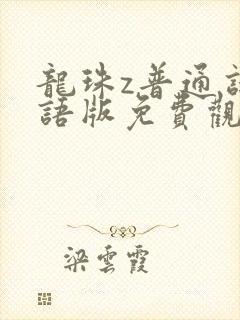 龍珠z普通話
語版免費觀
梁雲霞